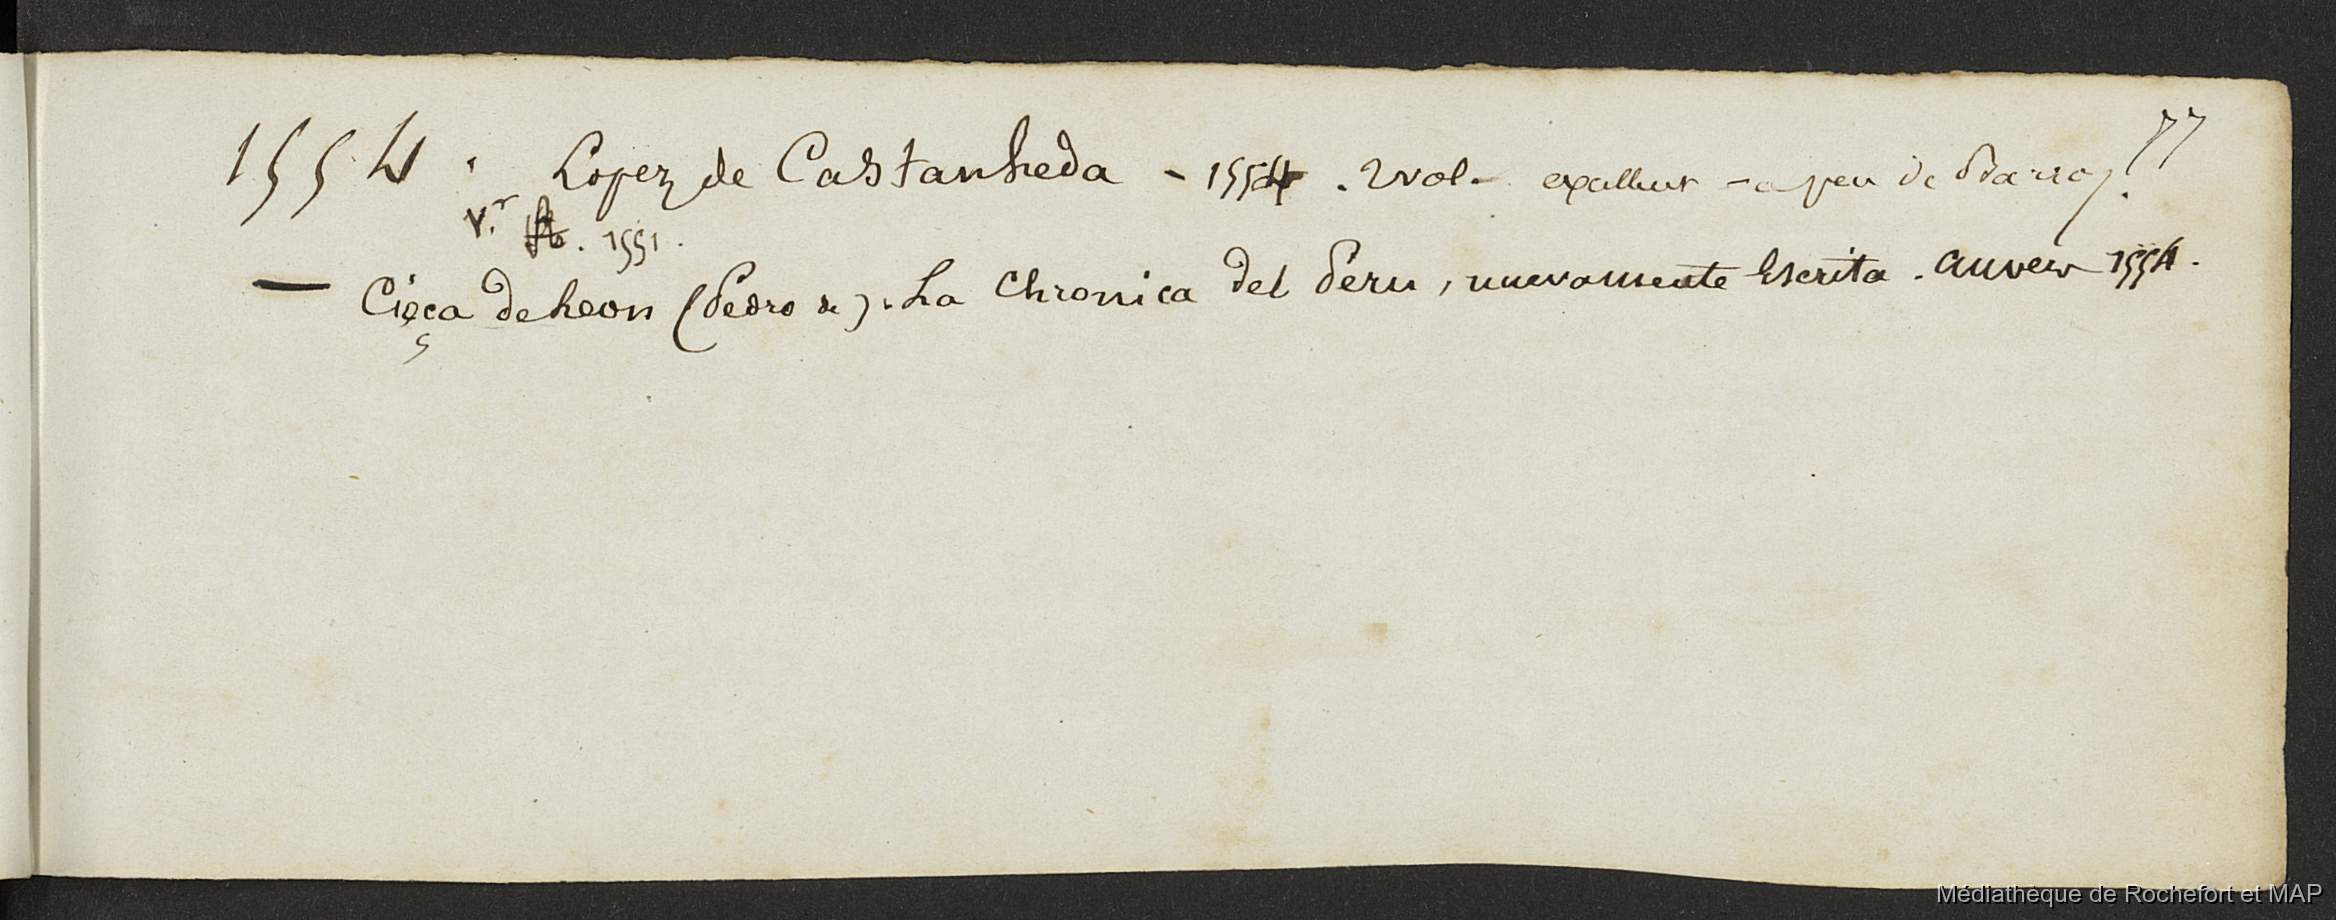 77
1554. Lopez de Castanheda - 1554. 2 vol - excellent - a peu de Barros.
v.r 1551.
— Cieça de Leon (Pedro de). La Chronica del Peru, nuevamente Escrita. Anvers 1554.
ç
Médiathèque de Rochefort et MAP